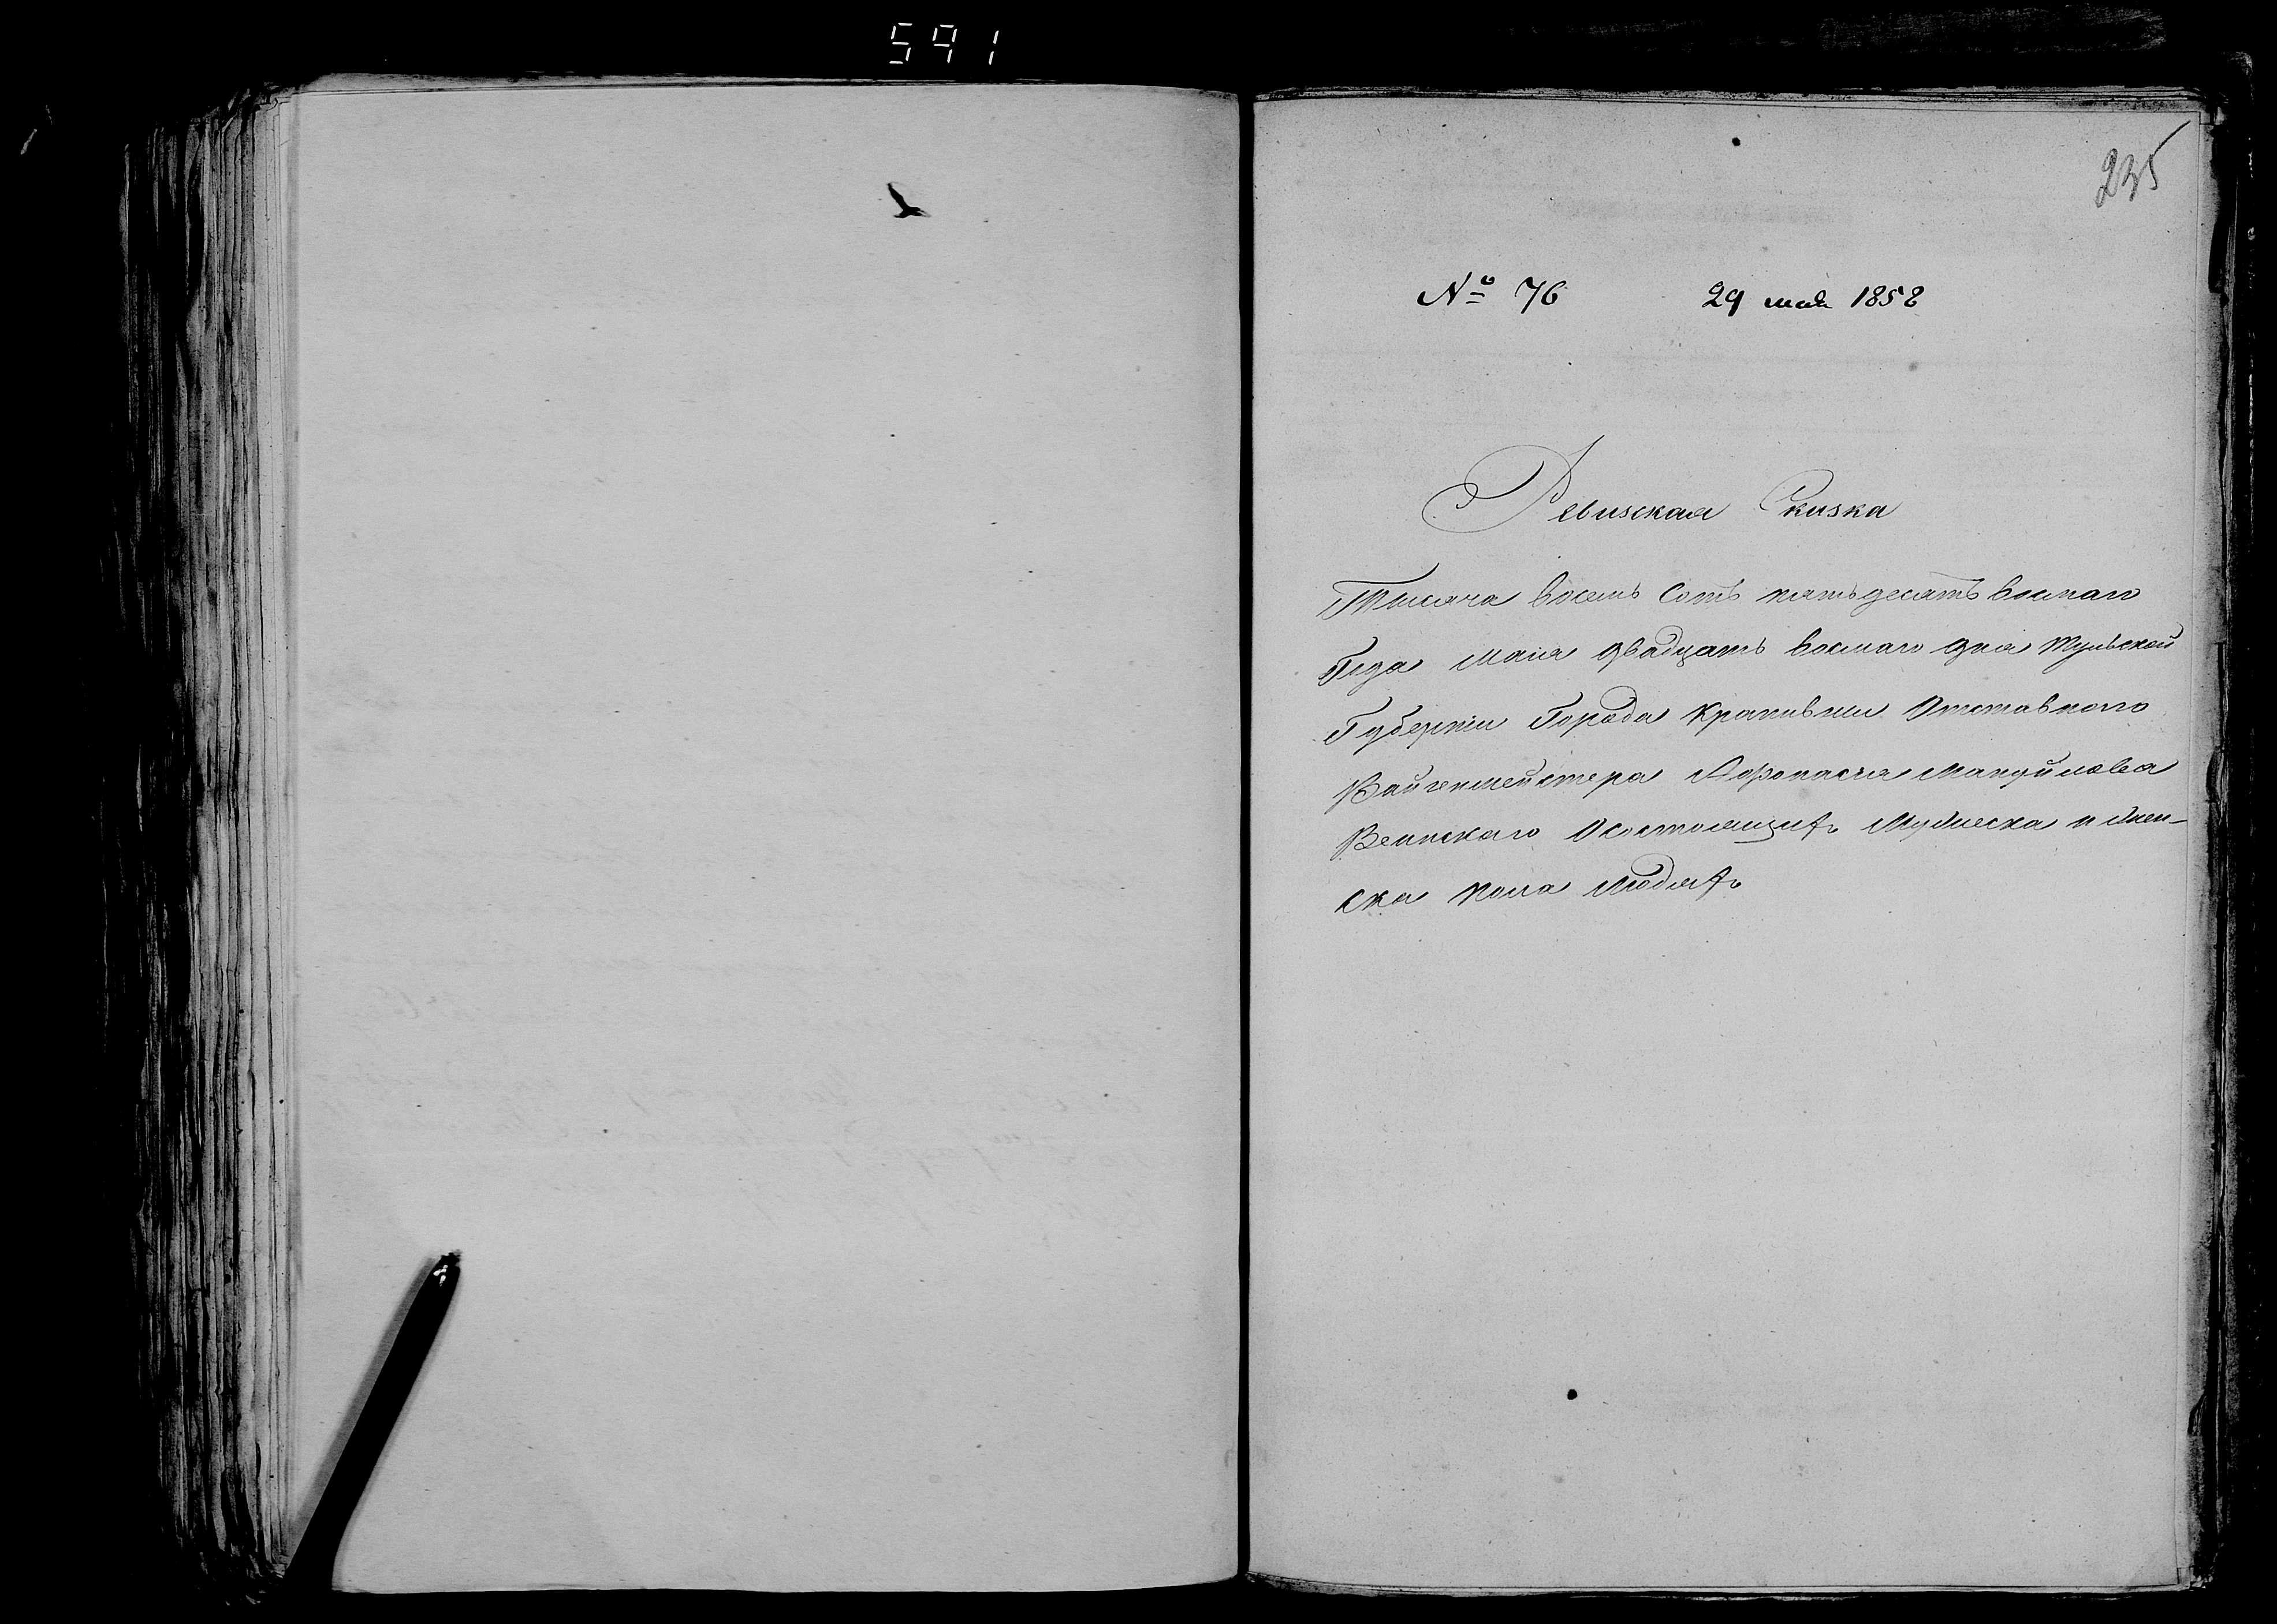 591
235
№ 76 29 мая 1858
Ревизская Скизка
Тысяча восемь Сотъ пятьдесятъ восмаго
Года Маия двадцать восмаго дня Тульской
Губернии Города Крапивны Отставнаго
Вайгенмейстера Афонасья Мануйлова
Веинскаго Осостоящихъ Мужеска и Жен-
ска пола Людяхъ